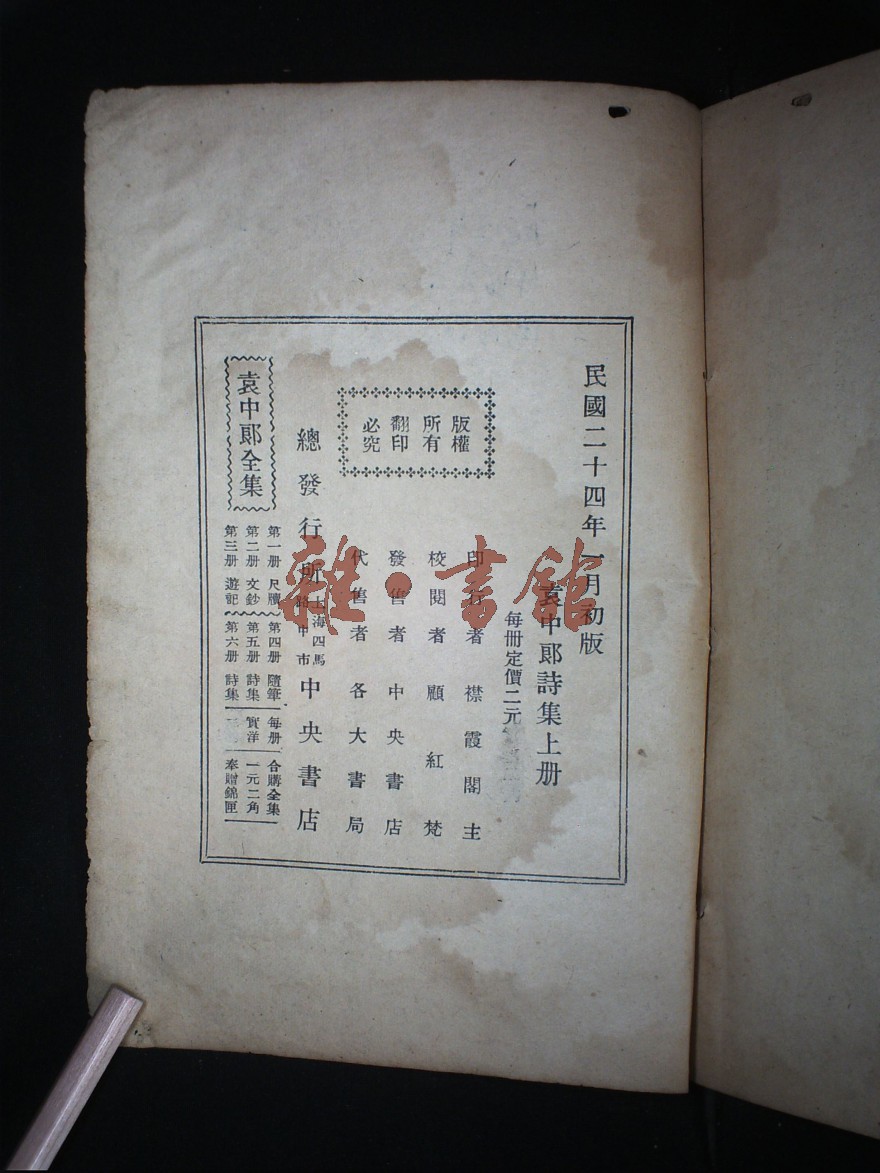 民國二十四年一月初版
袁中郎詩集上册
每册定價二元
印行者 襟霞閣主
校閱者 顧紅梵
發售者 中央書店
代售者 各大書局
版權
所有
翻印
必究
總發行所 上海四馬路中市 中央書店
袁中郎全集
第一册 尺牘 第四册 隨筆 每册 合購全集
第二册 文鈔 第五册 詩集 實洋 一元二角
第三册 遊記 第六册 詩集 奉贈錦匣
雜·書館